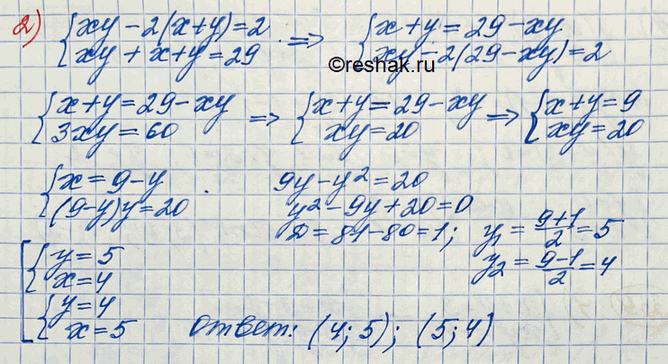 2) { xy - 2(x+y) = 2 => { x+y = 29 - xy
{ xy + x + y = 29 { xy - 2(29 - xy) = 2
©reshak.ru
{ x+y = 29 - xy => { x+y = 29 - xy => { x+y = 9
{ 3xy = 60 { xy = 20 { xy = 20
{ x = 9 - y . 9y - y² = 20
{ (9-y)y = 20 y² - 9y + 20 = 0
D = 81 - 80 = 1; y₁ = (9+1)/2 = 5
[ { y = 5 y₂ = (9-1)/2 = 4
{ x = 4
{ y = 4
{ x = 5 Ответ: (4; 5); (5; 4)